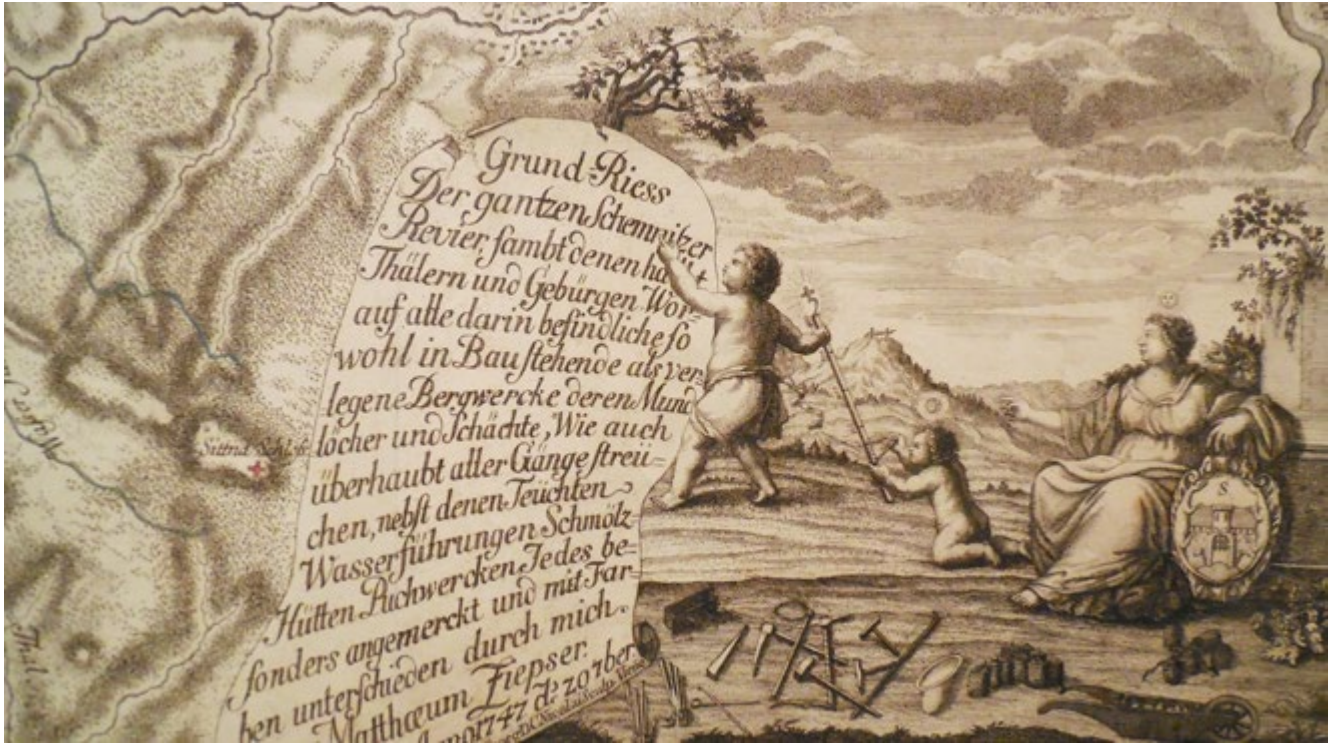 Grund-Riess
Der gantzen Schemnitzer
Revier, sambt denen ha üt
Thälern und Gebürgen Wor-
auf alle darin befindliche so
wohl in Bau stehende als ver-
legene Bergwercke deren Mund
löcher und Schächte, Wie auch
überhaubt aller Gänge streü-
chen, nebst denen Teüchten
Wasserführungen Schmöltz-
Hütten Puchwercken Jedes be-
sonders angemerckt und mit Far-
ben unterschieden durch mich
Matthœum Ziepser.
Anno 1747 d: 20 7ber
Sittna Schloß
Thal
S